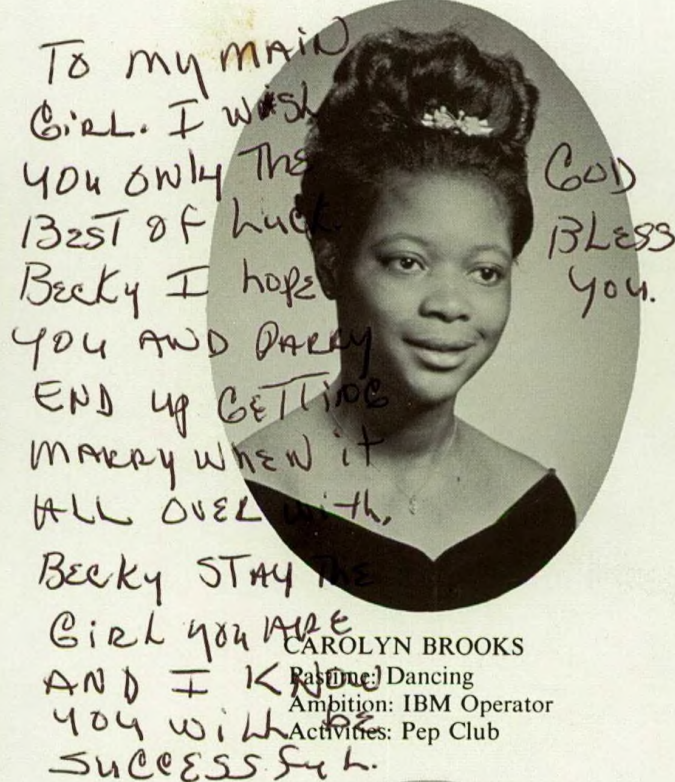 To my MAIN
GiRL. I wish
you only The
BEST OF Luck
Becky I hope
you AND DARRY
END up GETTiNG
MARRY WHEN it
ALL OVER with,
BECKY STAY THE
GiRL you ARE
AND I KNOW
you will be
SUCCESSful.
GOD
BLESS
you.
CAROLYN BROOKS
Pastime: Dancing
Ambition: IBM Operator
Activities: Pep Club